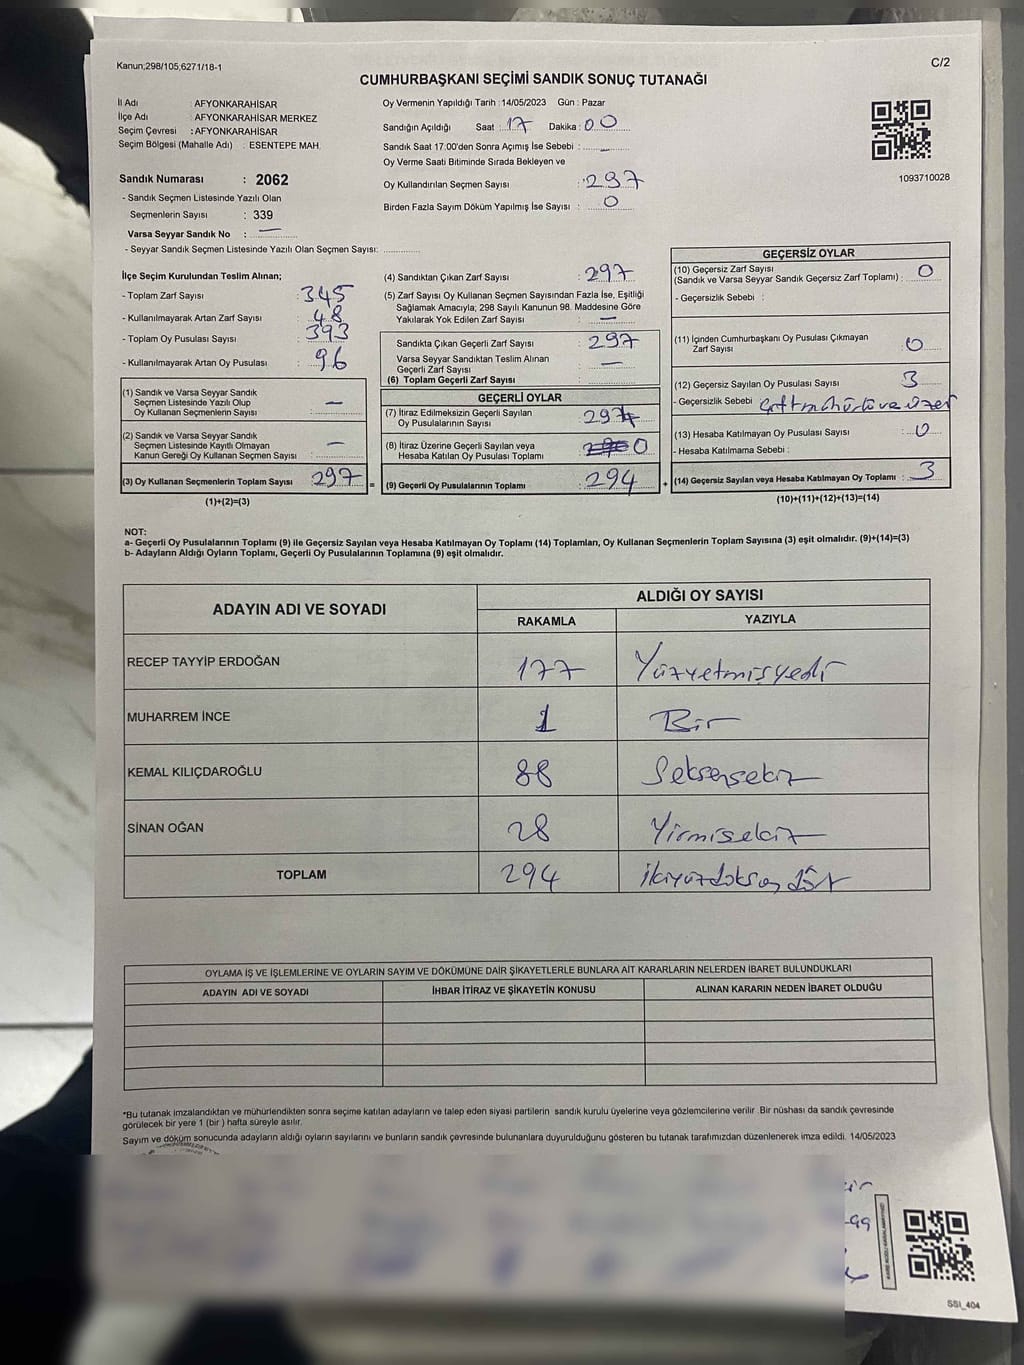 Kanun;298/105;6271/18-1
C/2
CUMHURBAŞKANI SEÇİMİ SANDIK SONUÇ TUTANAĞI
İl Adı : AFYONKARAHİSAR
İlçe Adı : AFYONKARAHİSAR MERKEZ
Seçim Çevresi : AFYONKARAHİSAR
Seçim Bölgesi (Mahalle Adı) : ESENTEPE MAH.
Sandık Numarası : 2062
- Sandık Seçmen Listesinde Yazılı Olan
Seçmenlerin Sayısı : 339
Varsa Seyyar Sandık No : —
- Seyyar Sandık Seçmen Listesinde Yazılı Olan Seçmen Sayısı:
Oy Vermenin Yapıldığı Tarih :14/05/2023 Gün : Pazar
Sandığın Açıldığı Saat : 17 Dakika : 00
Sandık Saat 17:00'den Sonra Açımış İse Sebebi : —
Oy Verme Saati Bitiminde Sırada Bekleyen ve
Oy Kullandırılan Seçmen Sayısı : 297
Birden Fazla Sayım Döküm Yapılmış İse Sayısı : 0
1093710028
İlçe Seçim Kurulundan Teslim Alınan;
- Toplam Zarf Sayısı : 345
- Kullanılmayarak Artan Zarf Sayısı : 48
- Toplam Oy Pusulası Sayısı : 393
- Kullanılmayarak Artan Oy Pusulası : 96
(1) Sandık ve Varsa Seyyar Sandık
Seçmen Listesinde Yazılı Olup
Oy Kullanan Seçmenlerin Sayısı : —
(2) Sandık ve Varsa Seyyar Sandık
Seçmen Listesinde Kayıtlı Olmayan
Kanun Gereği Oy Kullanan Seçmen Sayısı : —
(3) Oy Kullanan Seçmenlerin Toplam Sayısı : 297
(1)+(2)=(3)
=
(4) Sandıktan Çıkan Zarf Sayısı : 297
(5) Zarf Sayısı Oy Kullanan Seçmen Sayısından Fazla İse, Eşitliği
Sağlamak Amacıyla; 298 Sayılı Kanunun 98. Maddesine Göre
Yakılarak Yok Edilen Zarf Sayısı : —
Sandıkta Çıkan Geçerli Zarf Sayısı : 297
Varsa Seyyar Sandıktan Teslim Alınan
Geçerli Zarf Sayısı : —
(6) Toplam Geçerli Zarf Sayısı :
GEÇERLİ OYLAR
(7) İtiraz Edilmeksizin Geçerli Sayılan
Oy Pusulalarının Sayısı : 294
(8) İtiraz Üzerine Geçerli Sayılan veya
Hesaba Katılan Oy Pusulası Toplamı : 0
(9) Geçerli Oy Pusulalarının Toplamı : 294
+
GEÇERSİZ OYLAR
(10) Geçersiz Zarf Sayısı
(Sandık ve Varsa Seyyar Sandık Geçersiz Zarf Toplamı) : 0
- Geçersizlik Sebebi :
(11) İçinden Cumhurbaşkanı Oy Pusulası Çıkmayan
Zarf Sayısı : 0
(12) Geçersiz Sayılan Oy Pusulası Sayısı : 3
- Geçersizlik Sebebi
(13) Hesaba Katılmayan Oy Pusulası Sayısı : 0
- Hesaba Katılmama Sebebi :
(14) Geçersiz Sayılan veya Hesaba Katılmayan Oy Toplamı : 3
(10)+(11)+(12)+(13)=(14)
NOT:
a- Geçerli Oy Pusulalarının Toplamı (9) ile Geçersiz Sayılan veya Hesaba Katılmayan Oy Toplamı (14) Toplamları, Oy Kullanan Seçmenlerin Toplam Sayısına (3) eşit olmalıdır. (9)+(14)=(3)
b- Adayların Aldığı Oyların Toplamı, Geçerli Oy Pusulalarının Toplamına (9) eşit olmalıdır.
ADAYIN ADI VE SOYADI
ALDIĞI OY SAYISI
RAKAMLA YAZIYLA
RECEP TAYYİP ERDOĞAN 177 Yüzyetmişyedi
MUHARREM İNCE 1 Bir
KEMAL KILIÇDAROĞLU 88 Seksensekiz
SİNAN OĞAN 28 Yirmisekiz
TOPLAM 294 ikiyüzdoksan dört
OYLAMA İŞ VE İŞLEMLERİNE VE OYLARIN SAYIM VE DÖKÜMÜNE DAİR ŞİKAYETLERLE BUNLARA AİT KARARLARIN NELERDEN İBARET BULUNDUKLARI
ADAYIN ADI VE SOYADI İHBAR İTİRAZ VE ŞİKAYETİN KONUSU ALINAN KARARIN NEDEN İBARET OLDUĞU
*Bu tutanak imzalandıktan ve mühürlendikten sonra seçime katılan adayların ve talep eden siyasi partilerin sandık kurulu üyelerine veya gözlemcilerine verilir .Bir nüshası da sandık çevresinde
görülecek bir yere 1 (bir ) hafta süreyle asılır.
Sayım ve döküm sonucunda adayların aldığı oyların sayılarını ve bunların sandık çevresinde bulunanlara duyurulduğunu gösteren bu tutanak tarafımızdan düzenlenerek imza edildi. 14/05/2023
SSI_404